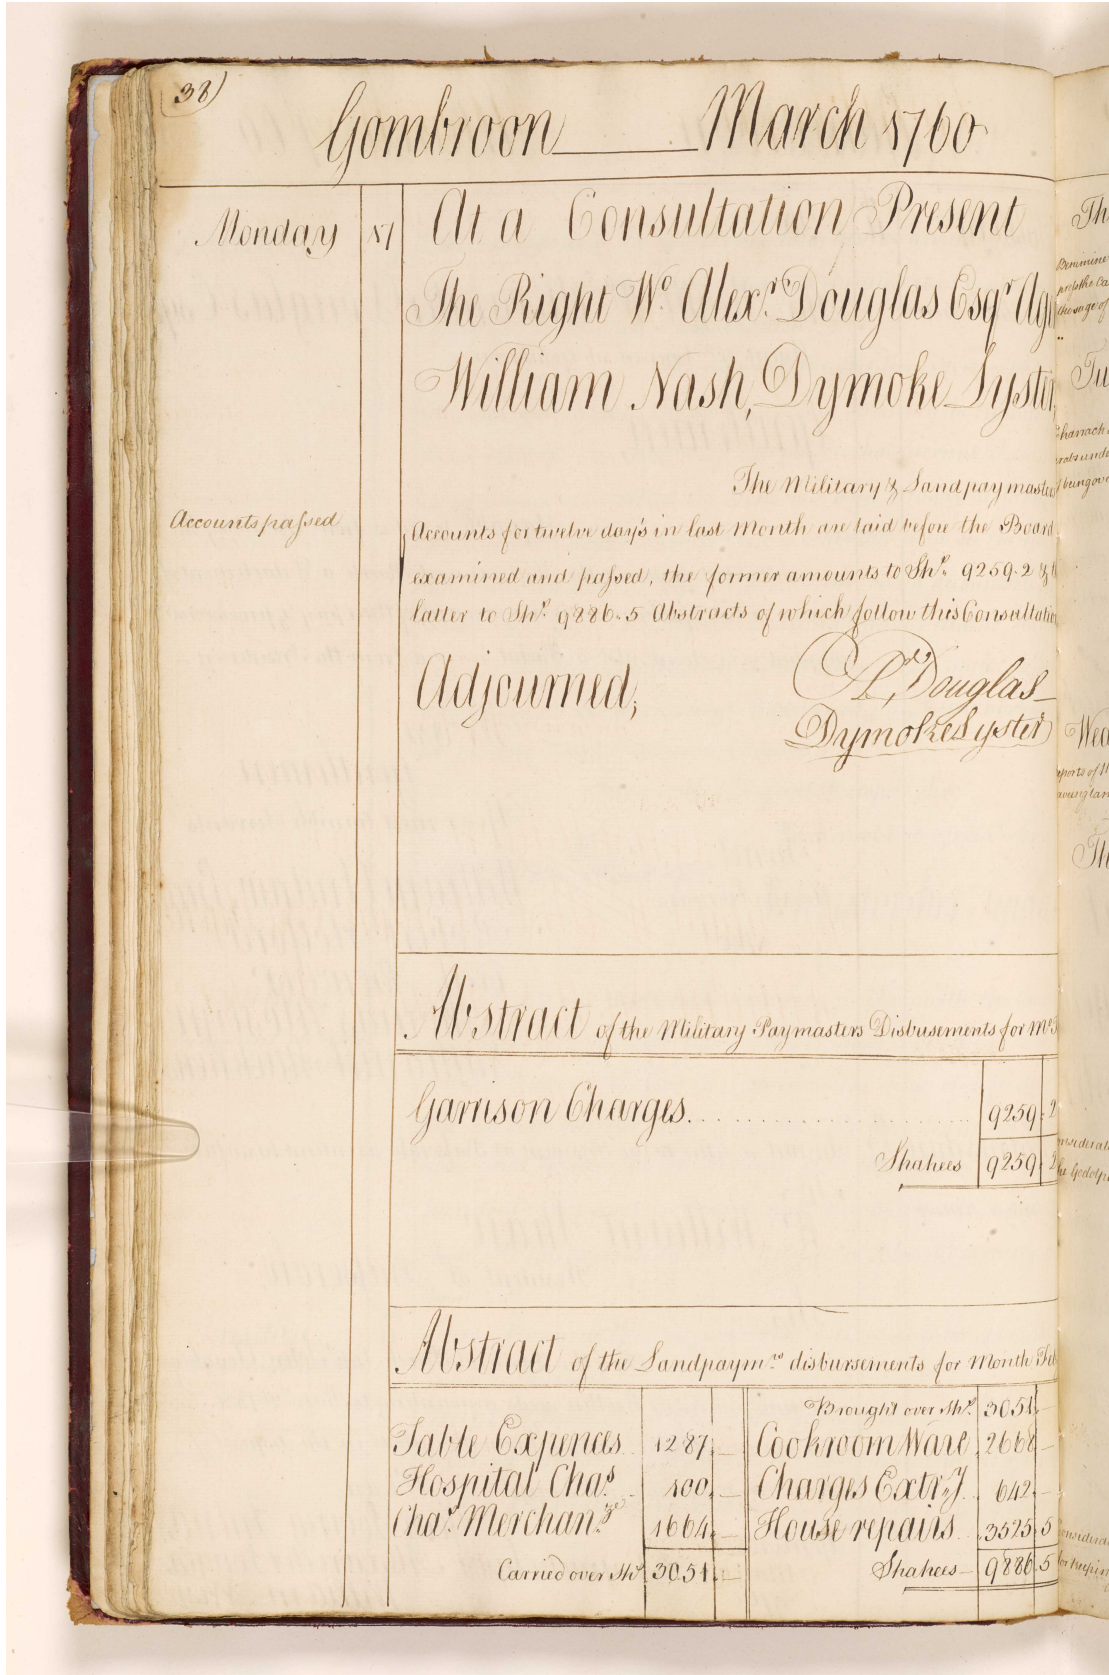 38)
Gombroon March 1760
Monday 17 At a Consultation Present
The Right Wo. Alexr. Douglas Esqr Agt
William Nash, Dymoke Lyster,
The Military & Landpaymasters
Accounts passed
Accounts for twelve day's in last Month are laid before the Board
examined and passed, the former amounts to Shs. 9259.2 &
latter to Shs. 9886.5 Abstracts of which follow this Consultation
Adjourned,
Ar. Douglas
Dymoke Lyster
Abstract of the Military Paymasters Disbusements for Mo.
Garrison Charges 9259.2
Shahees 9259.2
Abstract of the Landpaymrs. disbursements for Month Feb
Brought over Shs. 3051.-
Table Expences 1287.- Cookroom Ware 2668-
Hospital Chas. 100.- Charges Extry. 642.-
Char. Merchanze. 1664.- House repairs 3525.5
Carried over Shs. 3051.- Shahees- 9886.5